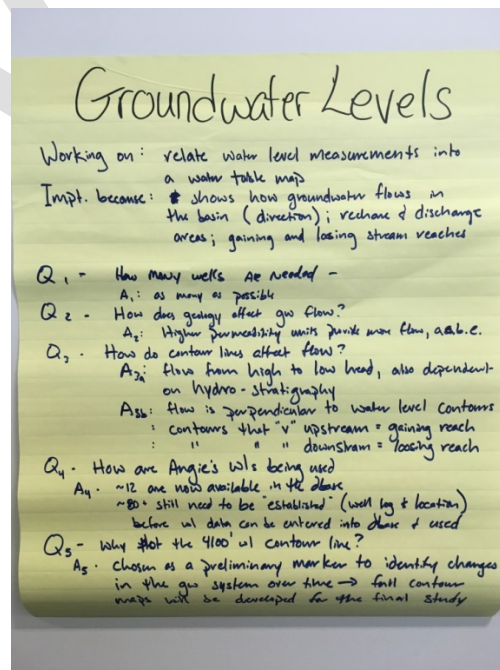 Groundwater Levels
Working on: relate water level measurements into
a water table map
Impt. because: shows how groundwater flows in
the basin (direction); recharge & discharge
areas; gaining and losing stream reaches
Q1 - How many wells are needed -
A1: as many as possible
Q2 - How does geology affect gw flow?
A2: Higher permeability units provide more flow, a.e.b.e.
Q3. How do contour lines affect flow?
A3a: flow from high to low head, also dependent
on hydro-stratigraphy
A3b: flow is perpendicular to water level contours
: contours that "v" upstream = gaining reach
: " " " downstream = loosing reach
Q4 - How are Angie's wls being used
A4. ~12 are now available in the dbase
~80+ still need to be "established" (well log & location)
before wl data can be entered into dbase & used
Q5 - Why plot the 4100' wl contour line?
A5. Chosen as a preliminary marker to identify changes
in the gw system over time → full contour
maps will be developed for the final study